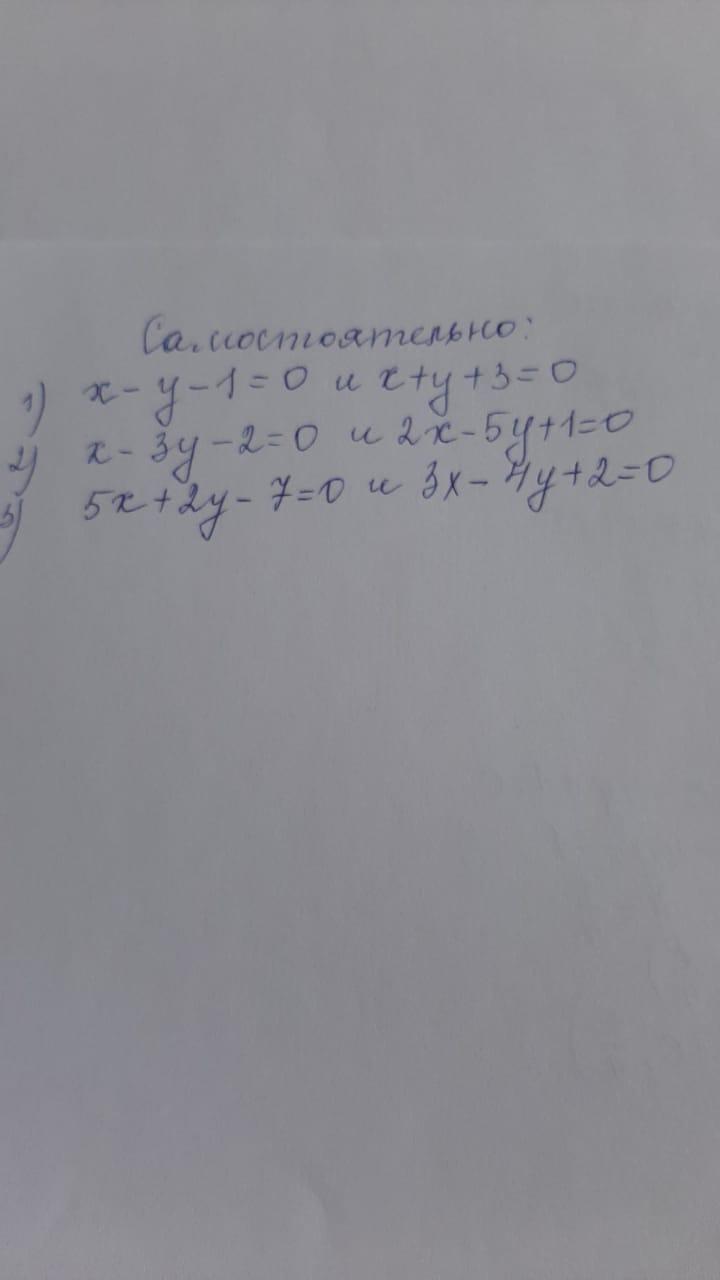 Самостоятельно:
1) x - y - 1 = 0 и x + y + 3 = 0
2) x - 3y - 2 = 0 и 2x - 5y + 1 = 0
3) 5x + 2y - 7 = 0 и 3x - 4y + 2 = 0